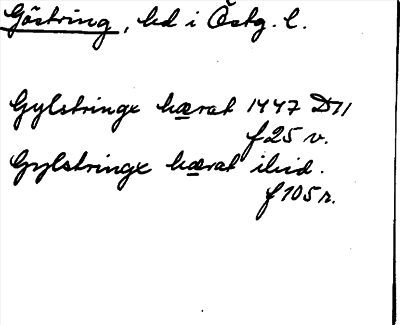 Göstring, hd i Östg. l.
Gylstringe hærat 1447 D11
f 25 v.
Gylstringe hærat ibid.
f 105 r.